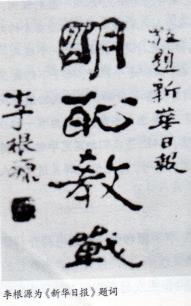 敬题新华日報
明耻教戰
李根源
李根源为《新华日报》题词